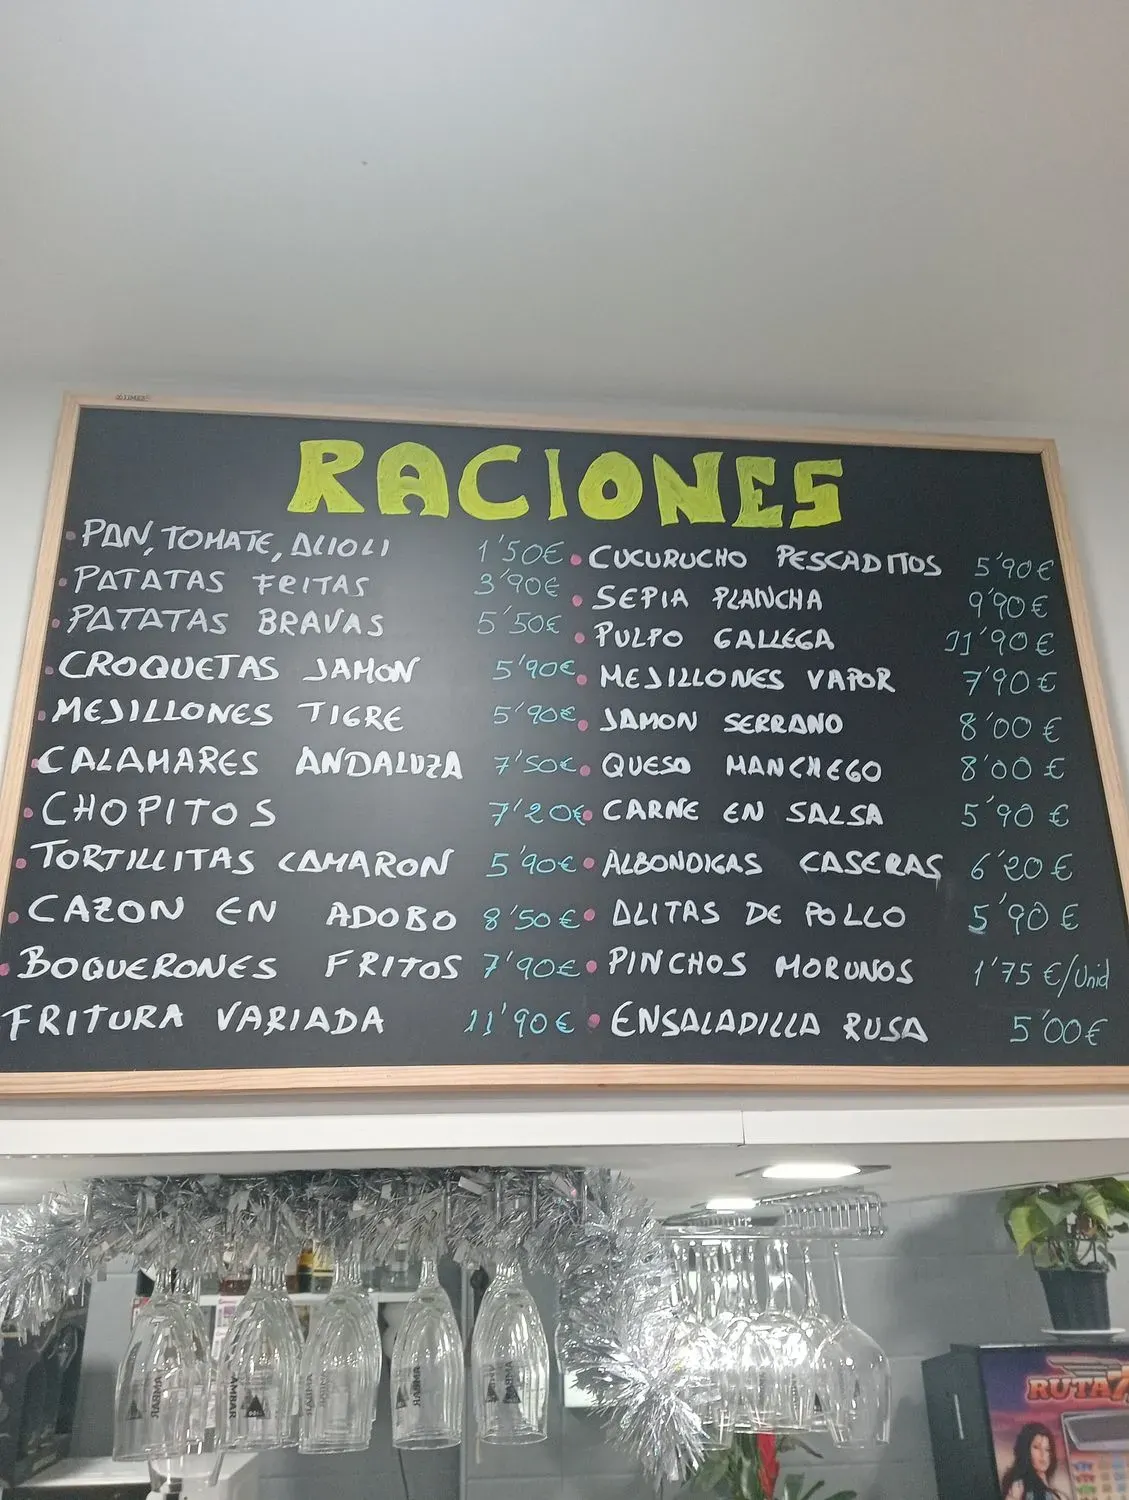 RACIONES
PAN, TOMATE, ALIOLI 1'50€
PATATAS FRITAS 3'90€
PATATAS BRAVAS 5'50€
CROQUETAS JAMON 5'90€
MEJILLONES TIGRE 5'90€
CALAMARES ANDALUZA 7'50€
CHOPITOS 7'20€
TORTILLITAS CAMARON 5'90€
CAZON EN ADOBO 8'50€
BOQUERONES FRITOS 7'90€
FRITURA VARIADA 11'90€
CUCURUCHO PESCADITOS 5'90€
SEPIA PLANCHA 9'90€
PULPO GALLEGA 11'90€
MEJILLONES VAPOR 7'90€
JAMON SERRANO 8'00€
QUESO MANCHEGO 8'00€
CARNE EN SALSA 5'90€
ALBONDIGAS CASERAS 6'20€
ALITAS DE POLLO 5'90€
PINCHOS MORUNOS 1'75€/Unid
ENSALADILLA RUSA 5'00€
AMBAR
AMBAR
AMBAR
AMBAR
RUTA